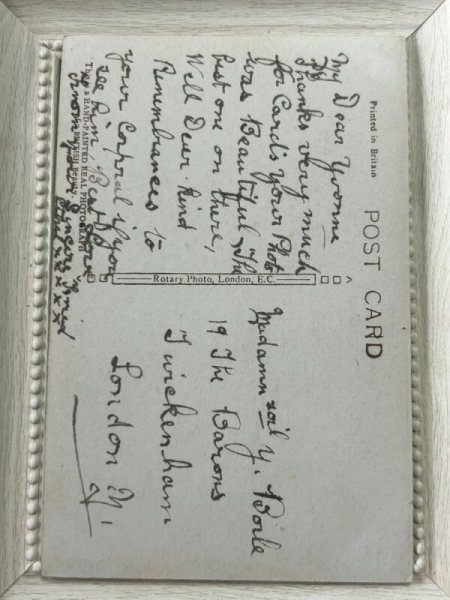 Printed in Britain
POST CARD
My Dear Yvonne
Thanks very much
for Cards Your Photo
was Beautiful The
best one on there,
Will Dear. Kind
Remembrances to
your Corpral if you
see him.
THIS IS A HAND-PAINTED REAL PHOTOGRAPH
BRITISH
from your Sincere Friend
x x x x
Rotary Photo, London, E.C.
Madamnzoil Y. Boile
19 The Barons
Twickenham
London